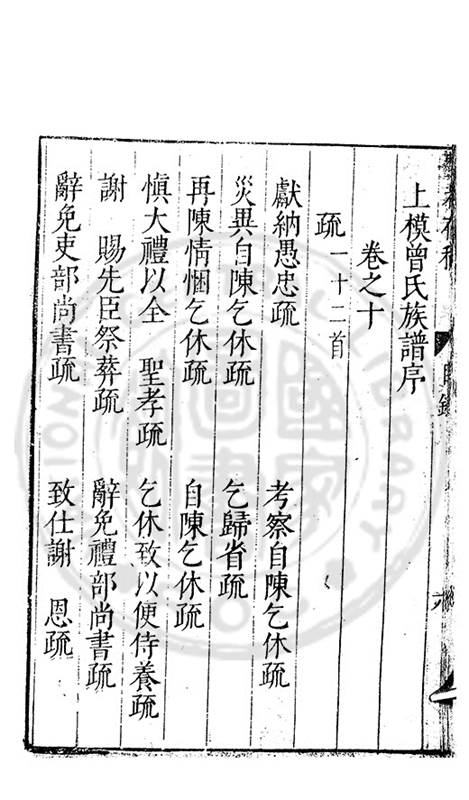 上模曾氏族譜序
卷之十
疏一十二首
獻納愚忠疏　考察自陳乞休疏
災異自陳乞休疏　乞歸省疏
再陳情悃乞休疏　自陳乞休疏
慎大禮以全　聖孝疏　乞休致以便侍養疏
謝　賜先臣祭葬疏　辭免禮部尚書疏
辭免吏部尚書疏　致仕謝　恩疏